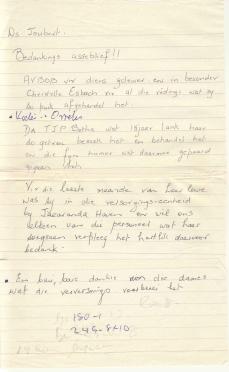 Ds Joubert.
Bedankings asseblief!!
AVBOB vir diens gelewer en in besonder
Christelle Esbach vir al die reëlings wat sy
so flink afgehandel het.
• Koster - Orrelis
DR T.J.P Botha wat 18 jaar lank haar
besoek het en behandel het
en die fyn humor wat daarmee gepaard
gegaan het.
Vir die laaste maande van haar lewe
was sy in die versorgings-eenheid
by Jacaranda Haven en wil ons
elkeen van die personeel wat haar
verpleeg het hartlik daarvoor
bedank.
• En baie, baie dankie aan die dames
wat die verversings voorberei het
180-1
249-8+10